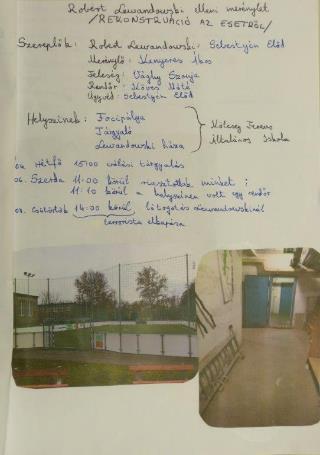 Robert Lewandowski elleni merénylet
/REKONSTRUÁCIÓ AZ ESETRŐL/
Szereplők: Robert Lewandowski: Sebestyén Előd
Merénylő: Kenyeres Ákos
Feleség: Vághy Szonja
Rendőr: Köves Máté
Ügyvéd: Sebestyén Előd
Helyszínek: Focipálya
Tárgyaló
Lewandowski háza
Kölcsey Ferenc
Általános Iskola
04. Hétfő 15:00 válási tárgyalás
06. Szerda 11:00 körül riasztottak minket;
11:10 körül a helyszínen volt egy rendőr
07. Csütörtök 14:00 körül látogatás Lewandowskinál
terrorista elkapása